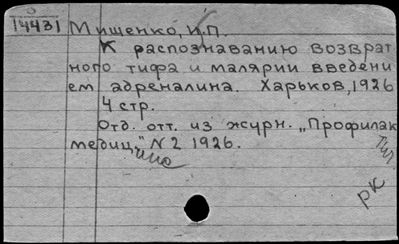 14431 Мищенко, И.П.
К распознаванию возврат
ного тифа и малярии введени
ем адреналина. Харьков, 1926
4 стр.
Отд. отт. из журн. „Профилак
медиц." N 2 1926.
рк